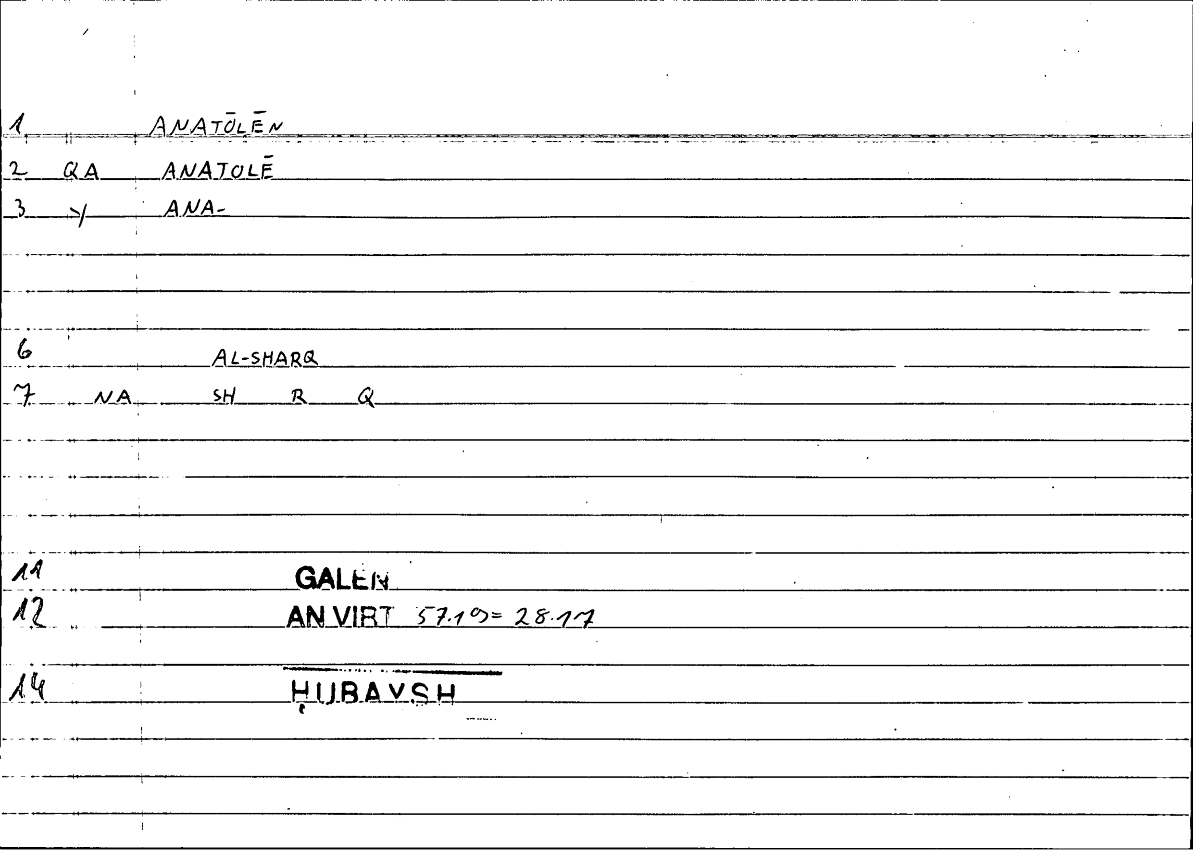 1 ANATŌLĒN
2 QA ANATOLĒ
3 ANA-
6 AL-SHARQ
7 NA SH R Q
11 GALEN
12 AN VIRT 57.19= 28.17
14 ḤUBAYSH